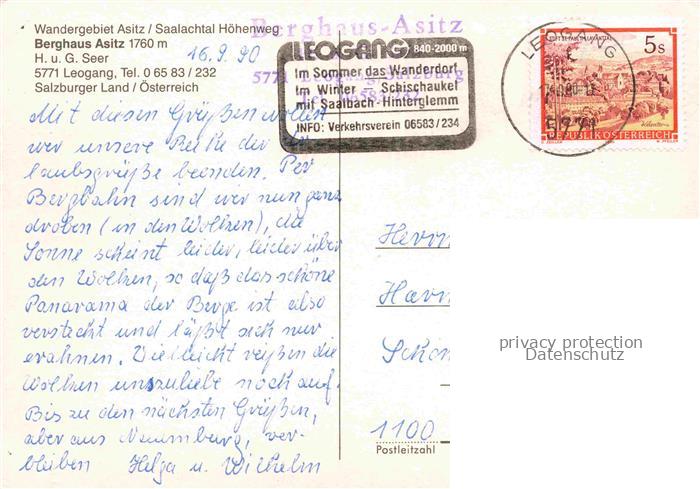 Wandergebiet Asitz / Saalachtal Höhenweg
Berghaus Asitz 1760 m
H. u. G. Seer
5771 Leogang, Tel. 0 65 83 / 232
Salzburger Land / Österreich
16.9.90
Mit diesen Grüßen wollen
wir unsere Reihe der Ur-
laubsgrüße beenden. Per
Bergbahn sind wir nun ganz
droben (in den Wolken), die
Sonne scheint leider, leider über
den Wolken, so daß das schöne
Panorama der Berge ist also
versteckt und läßt sich nur
erahnen. Vielleicht reißen die
Wolken uns zuliebe noch auf.
Bis zu den nächsten Grüßen,
aber aus Naumburg, ver-
bleiben Helga u. Wilhelm
Berghaus-Asitz
5771 Leogang, Salzburg
LEOGANG 840-2000 m
Im Sommer das Wanderdorf
Im Winter – Schischaukel
mit Saalbach-Hinterglemm
INFO: Verkehrsverein 06583/234
LEOGANG
5771
5 s
STIFT ST. PAUL IM LAVANTTAL
REPUBLIK ÖSTERREICH
Herrn
1100
Postleitzahl
privacy protection
Datenschutz